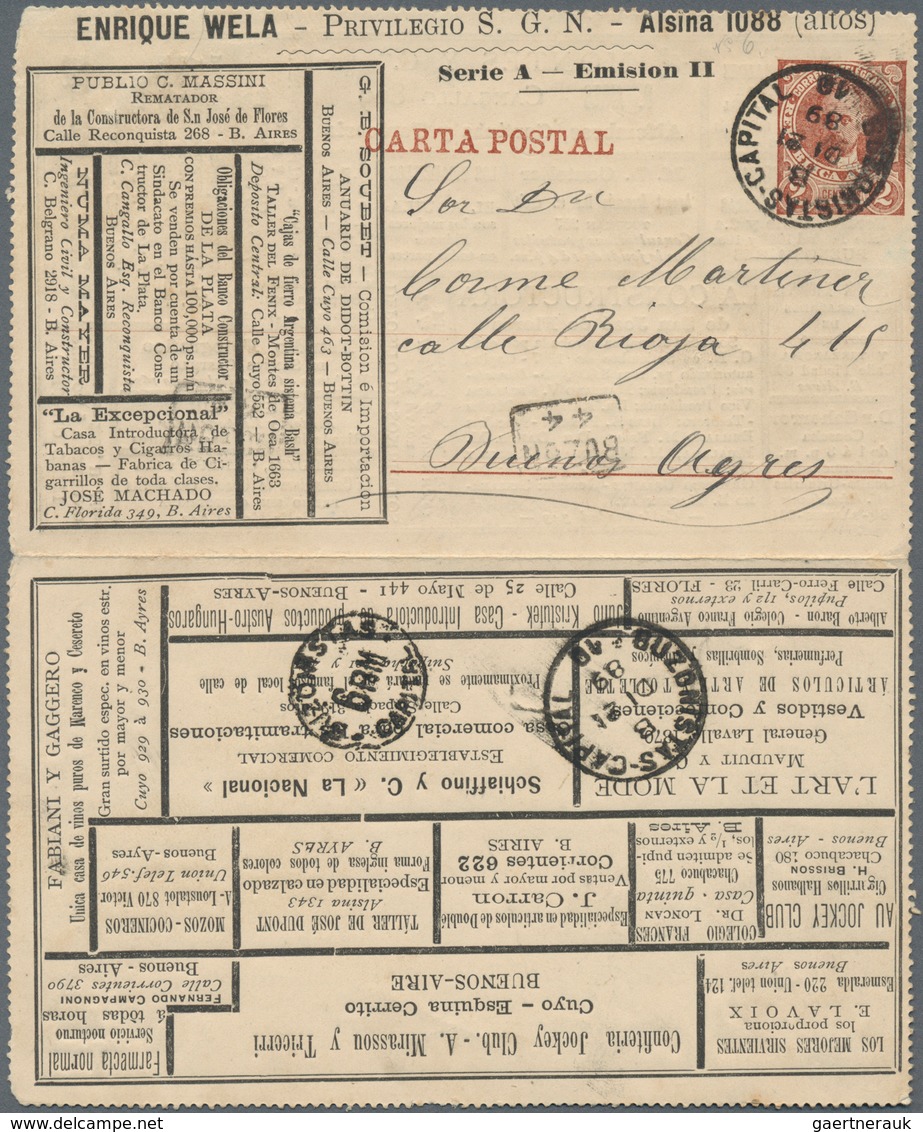 ENRIQUE WELA - PRIVILEGIO S. G. N. - Alsina 1088 (altos)
Nº 6.
Serie A — Emision II
CARTA POSTAL
BUZONISTAS-CAPITAL
21
D1
89
2
Sor Dn
Cosme Martinez
calle Rioja 415
Buenos Ayres
BUZON
44
PUBLIO C. MASSINI
REMATADOR
de la Constructora de S.n José de Flores
Calle Reconquista 268 - B. AIRES
NUMA MAYER
Ingeniero Civil y Constructor
C. Belgrano 2918 - B. Aires
Obligaciones del Banco Constructor
DE LA PLATA
CON PREMIOS HÁSTA 100,000 ps. m/n
Se venden por cuenta de un
Sindaccato en el Banco Cons-
tructor de La Plata,
C. Cangallo Esq. Reconquista
BUENOS AIRES
"Cajas de fierro Argentina sistema Bash"
TALLER DEL FENIX - Montes de Oca 1663
Deposito Central: Calle Cuyo 552 — B. Aires
G. E. SOUBET — Comision é Importacion
ANUARIO DE DIDOT-BOTTIN
BUENOS AIRES — Calle Cuyo 463 — BUENOS AIRES
"La Excepcional"
Casa Introductora de
Tabacos y Cigarros Ha-
banas — Fabrica de Ci-
garrillos de toda clases.
JOSÉ MACHADO
C. Florida 349, B. Aires
FABIANI Y GAGGERO
Unica casa de vinos puros de Marenco y Cesereto
Gran surtido espec. en vinos estr.
por mayor y menor
Cuyo 929 à 930 - B. Ayres
LOS MEJORES SIRVIENTES
los porporciona
E. LAVOIX
Esmeralda 220 - Union telef. 124
Buenos Aires
Confiteria Jockey Club.- A. Mirassou y Tricerri
Cuyo — Esquina Cerrito
BUENOS-AIRE
Farmacia normal
Servicio nocturno
á tòdas horas
FERNANDO CAMPAGNONI
Calle Corrientes 3790
Buenos - Aires
AU JOCKEY CLUB
Cigarrillos Habanos
H. BRISSON
Chacabuco 180
Buenos - Aires
COLEGIO FRANCES
DR. LONCAN
Casa - quinta
Chacabuco 775
Se admiten pupi-
los, 1/2 y externos
B. Aires
Especialidad en articulos de Doublé
J. Carron
Ventas por mayor y menor
Corrientes 622
B. AIRES
TÁLLER DE JOSÉ DUPONT
Alsina 1343
Especialidad en calzado
Forma inglesa de todos colores
B. AYRES
MOZOS - COCINEROS
A- Loustalot 870 Victor
Union Telef. 546
Buenos-Ayres
L'ART ET LA MODE
MAUDUIT Y C.
General Lavalle 1879
Vestidos y Confecciones
ÁRTICULOS DE
Perfumerias, Sombrillas,
Schiaffino y C. « La Nacional »
ESTABLECIMIENTO COMERCIAL
Proximamente se
local de calle
Suipacha
Alberto Baron - Colegio Franco Argentino
Pupilos, 1/2 y externos
Calle Ferro-Carril 23 - FLORES
Julio Kristufek - Casa Introductora de productos Austro-Hungaros
Calle 25 de Mayo 441 - BUENOS-AYRES
BUZONISTAS-CAPITAL
21
D1
89
BUZONISTAS
6PM
CAPITAL